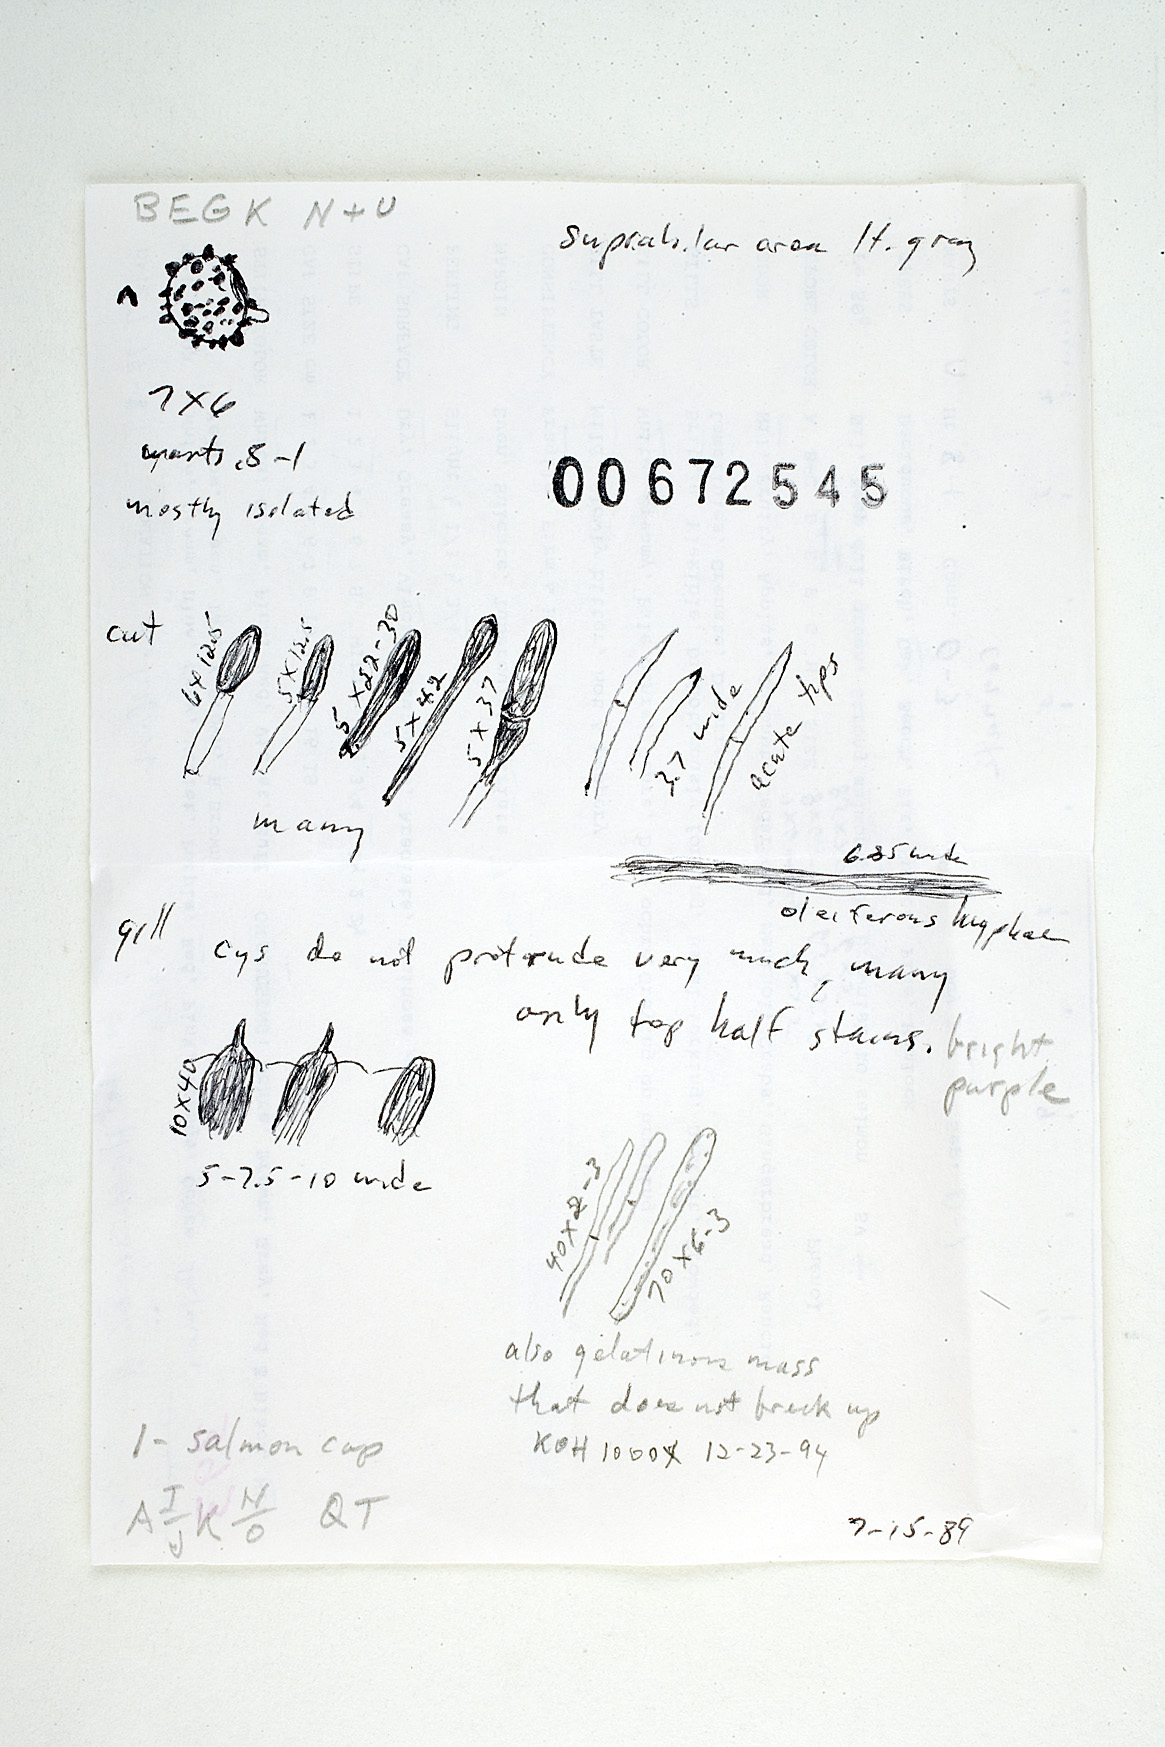 BEGK N+U
suprahilar area lt. gray
7x6
warts .8-1
mostly isolated
00672545
cut
6x12.5
5x12.5
5x22-30
5x42
5x37
3.7 wide
acute tips
many
6.25 wide
oleiferous hyphae
gill
cys do not protrude very much, many
only top half stains. bright
purple
10x40
5-7.5-10 wide
40x2-3
70x6-3
also gelatinous mass
that does not break up
KOH 1000X 12-23-94
1- salmon cap
A I/J K N/O QT
7-15-89